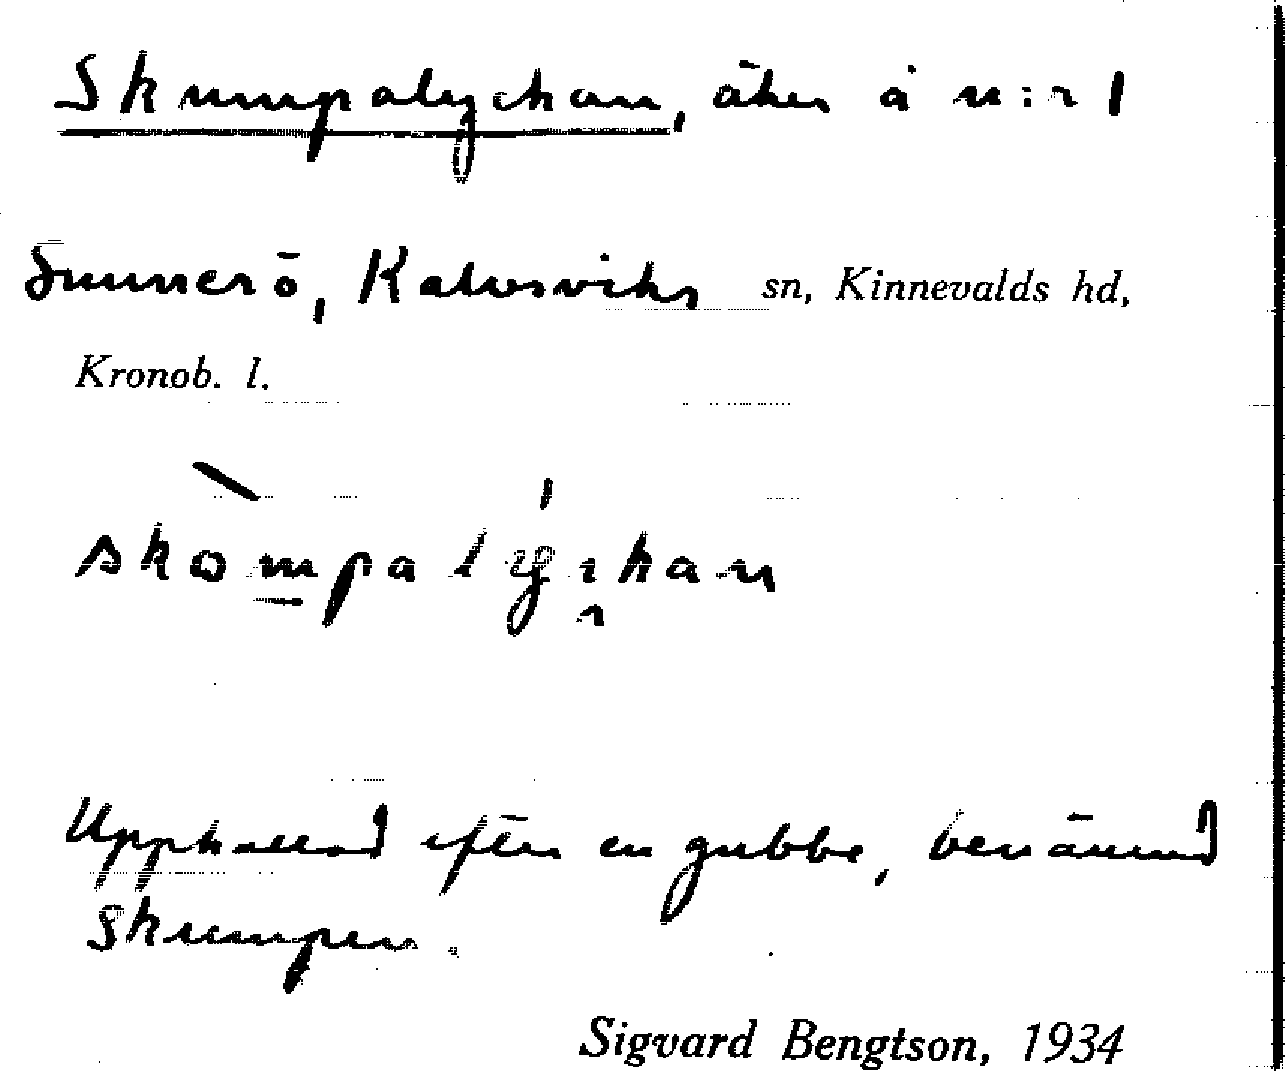 Skumpalyckan, åker å n:r 1
Sunnerö, Kalvsviks sn, Kinnevalds hd,
Kronob. l.
Uppkallad efter en gubbe, benämnd
Skumpen.
Sigvard Bengtson, 1934